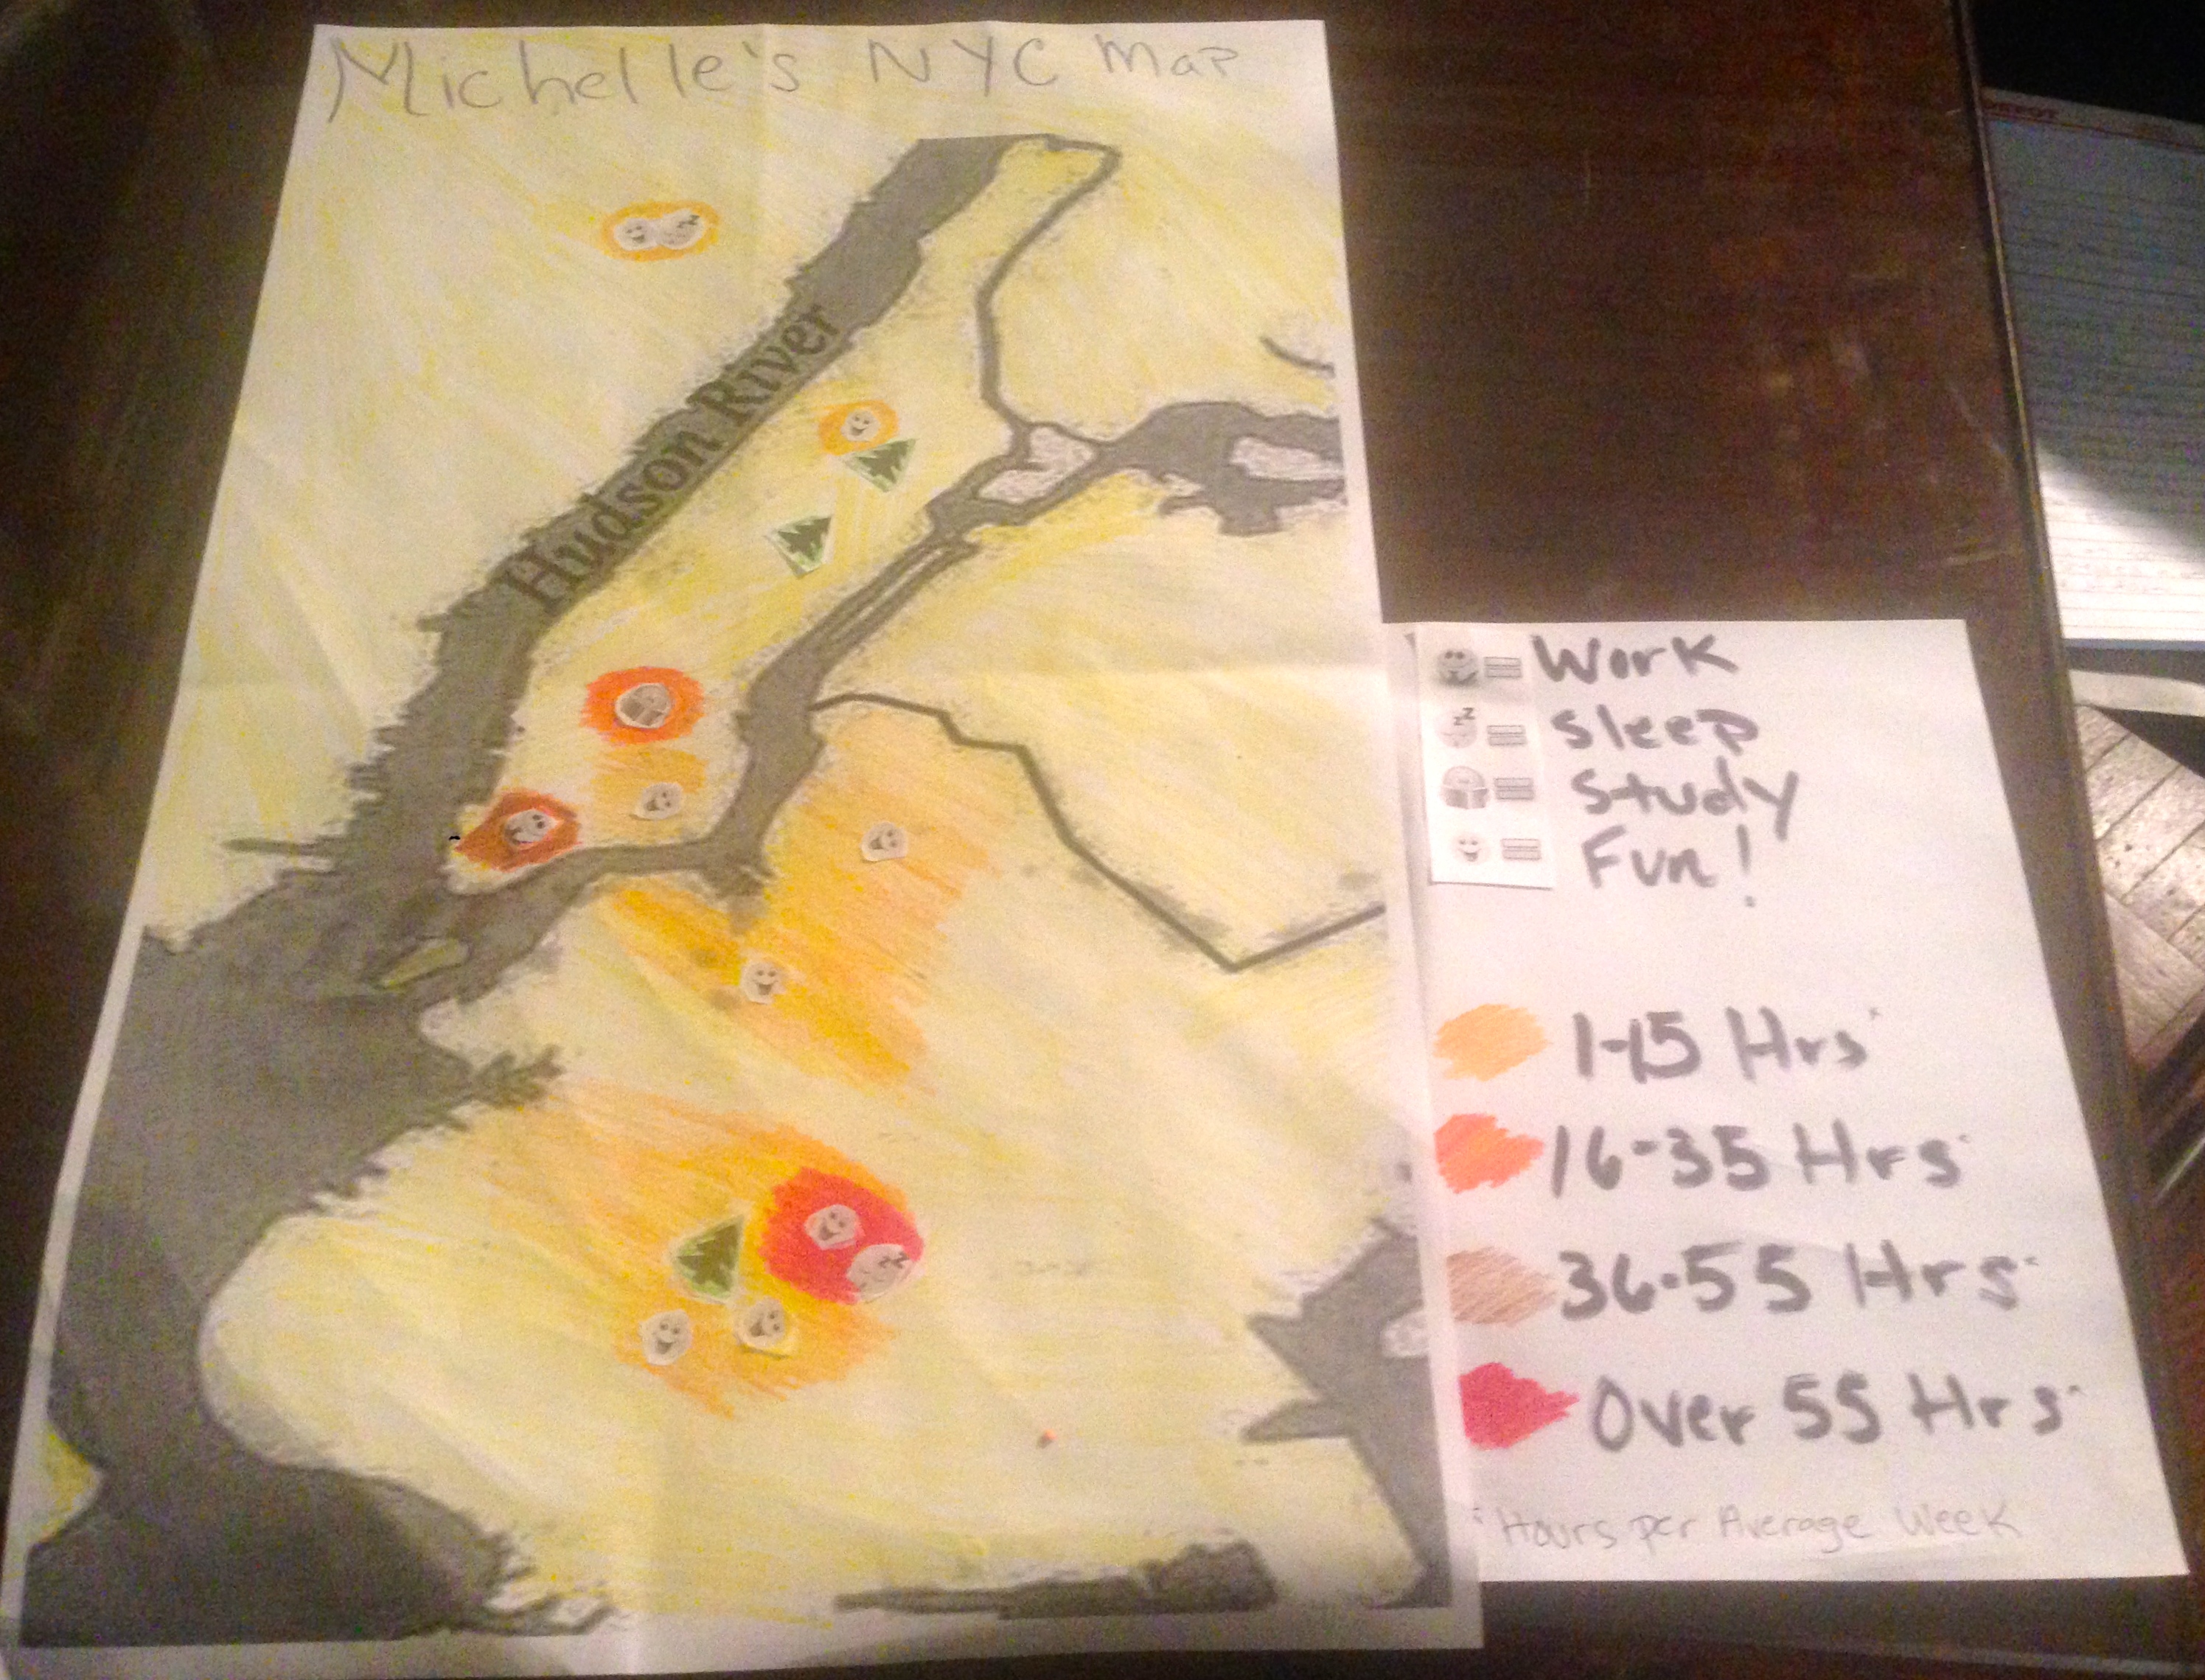 Michelle's NYC Map
Hudson River
= Work
zz = Sleep
= Study
= Fun!
1-15 Hrs*
16-35 Hrs*
36-55 Hrs*
Over 55 Hrs*
* Hours per Average Week